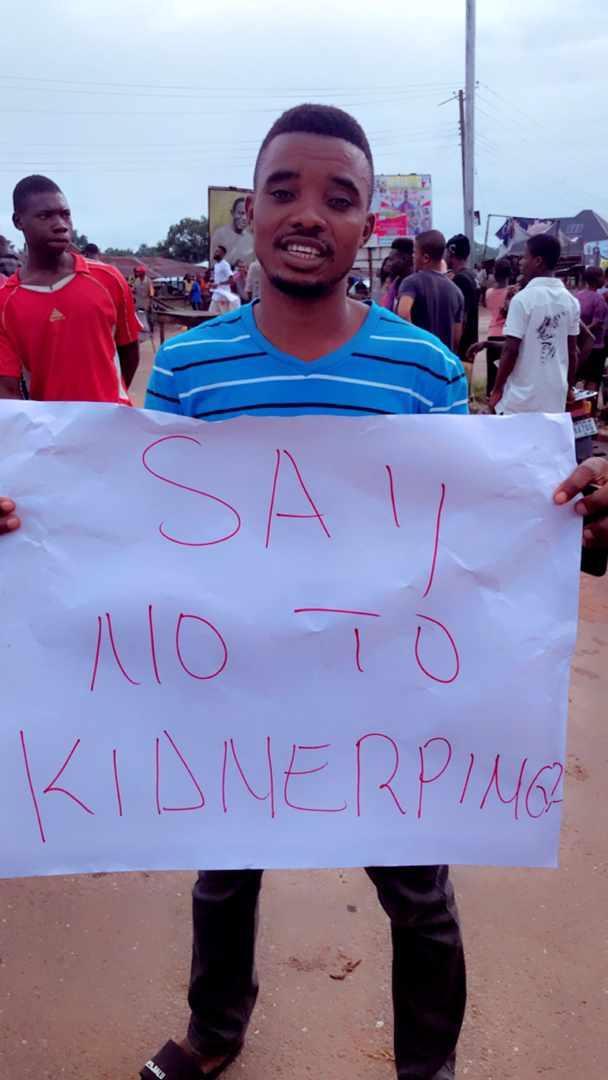 SAY
NO TO
KIDNERPING